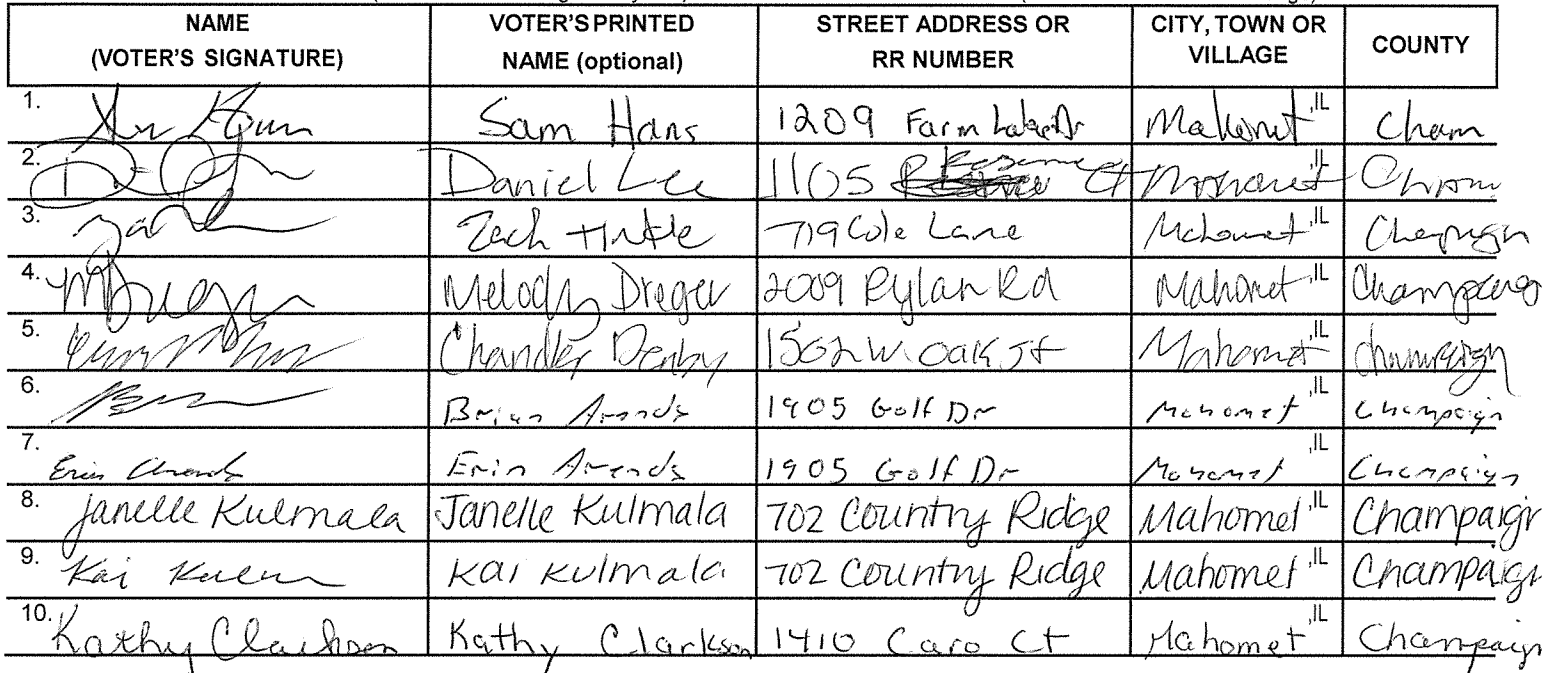 NAME VOTER'S PRINTED STREET ADDRESS OR CITY, TOWN OR COUNTY
(VOTER'S SIGNATURE) NAME (optional) RR NUMBER VILLAGE
1. Sam Hans 1209 Farm Lake Dr Mahomet ,IL Cham
2. Daniel Lee 1105 Ct Mahomet ,IL Cham
3. Zach 719 Cole Lane Mahomet ,IL Champaign
4. Melody Dreger 2009 Rylan Rd Mahomet ,IL Champaign
5. Chandler Denby 1502 W. Oak St Mahomet ,IL Champaign
6. Brian Arends 1905 Golf Dr Mahomet ,IL Champaign
7. Erin Arends Erin Arends 1905 Golf Dr Mahomet ,IL Champaign
8. Janelle Kulmala Janelle Kulmala 702 Country Ridge Mahomet ,IL Champaign
9. Kai Kai Kulmala 702 Country Ridge Mahomet ,IL Champaign
10. Kathy Clarkson Kathy Clarkson 1410 Caro Ct Mahomet ,IL Champaign